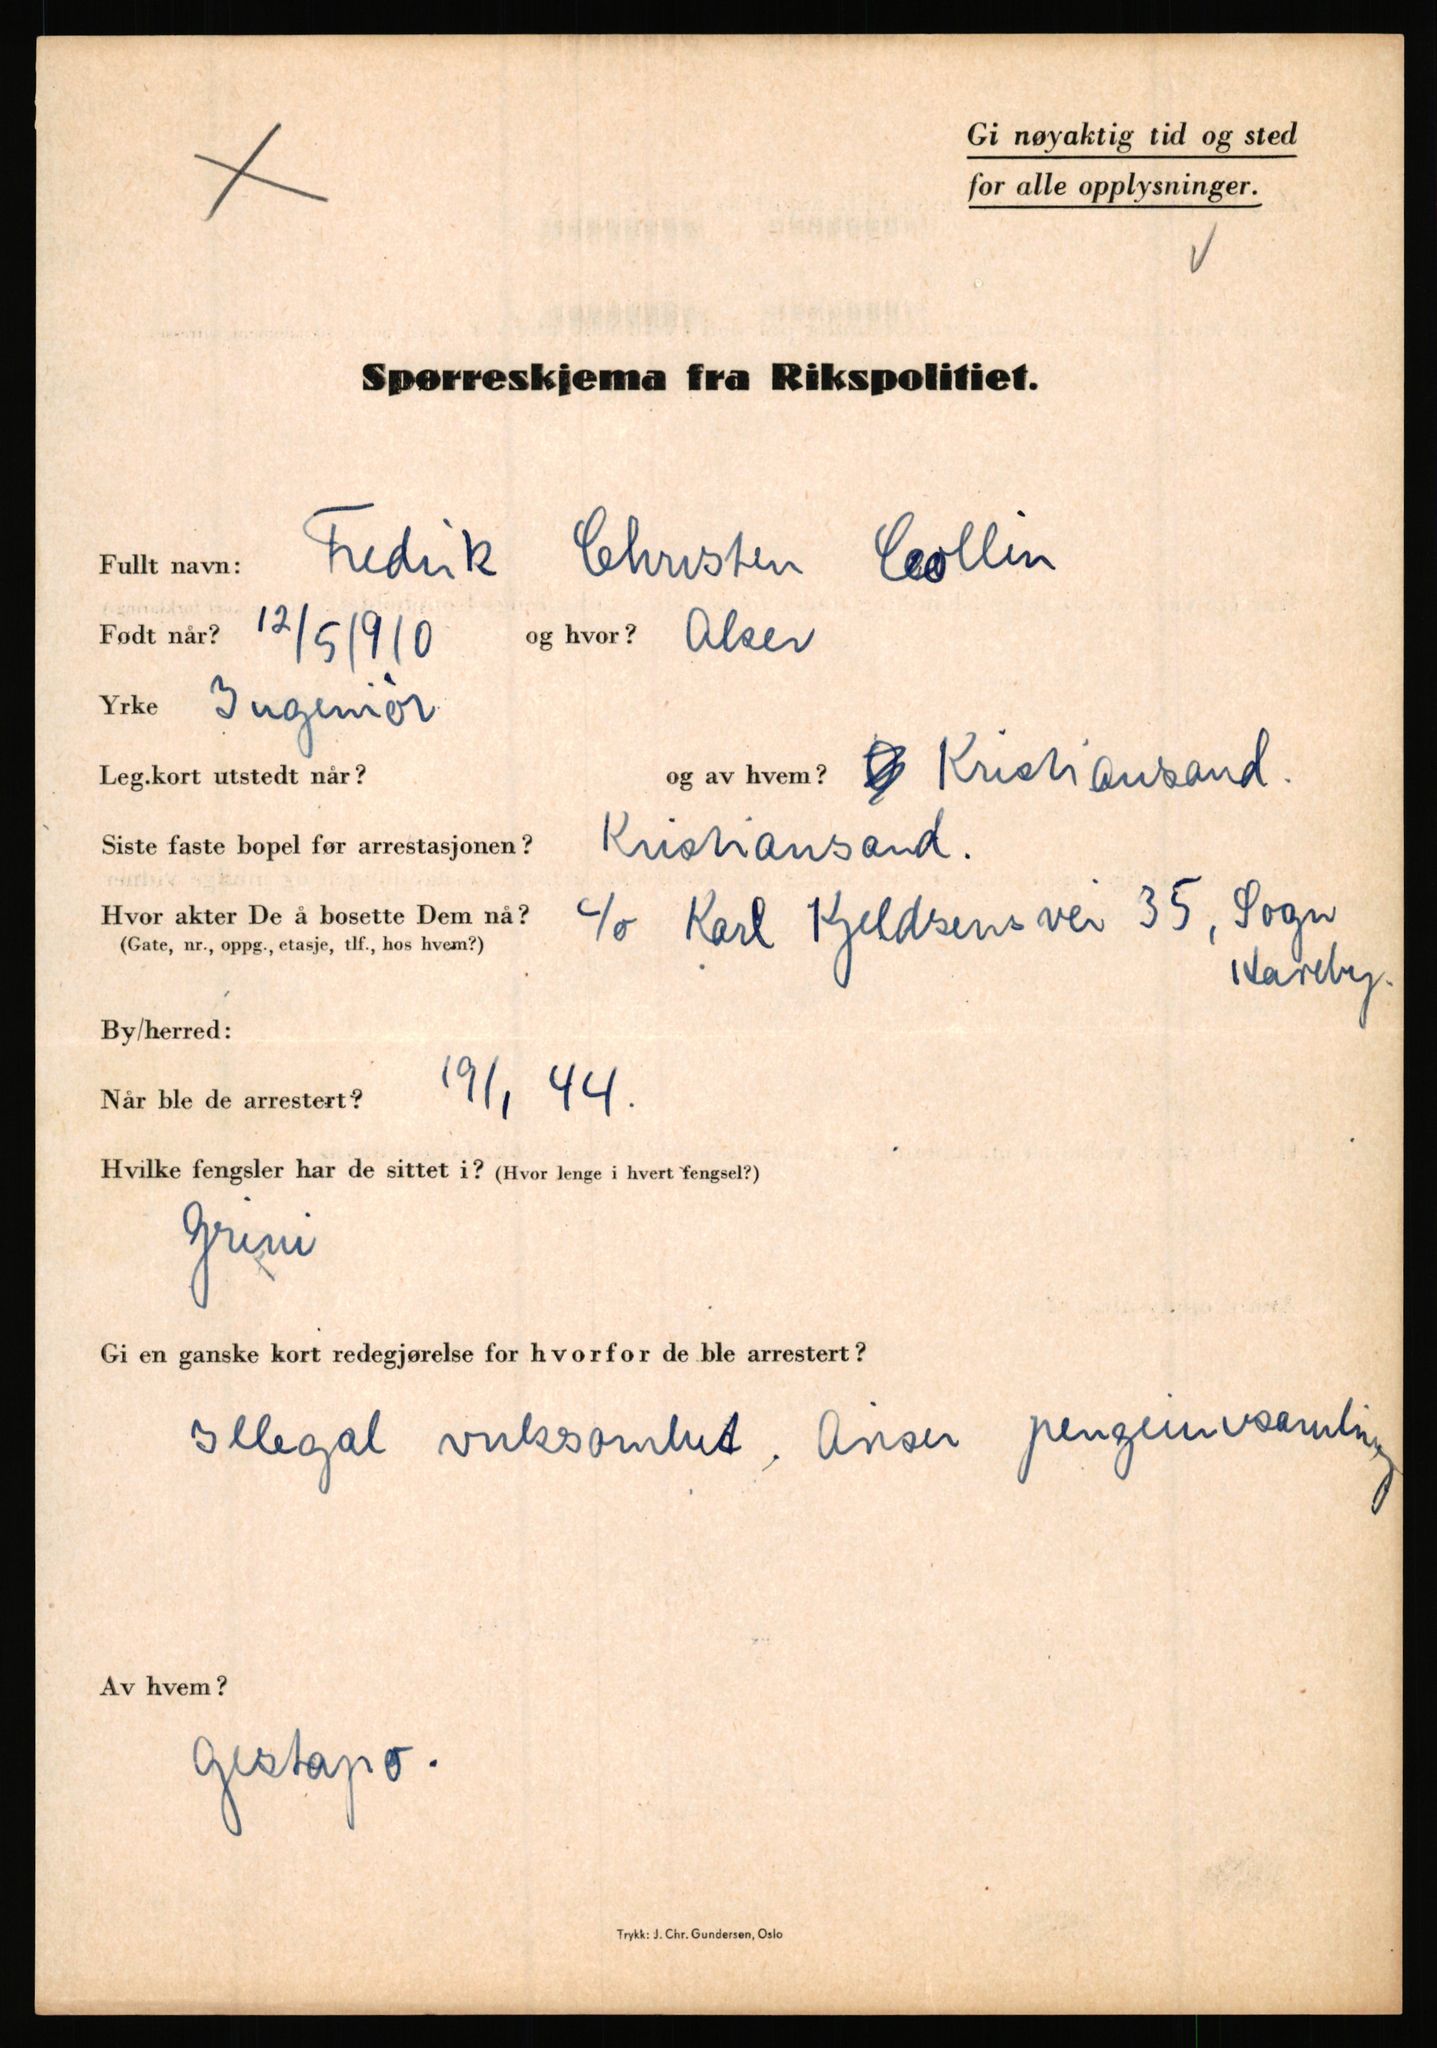 Gi nøyaktig tid og sted
for alle opplysninger.
Spørreskjema fra Rikspolitiet.
Fullt navn: Fredrik Christen Collin
Født når? 12/5 1910 og hvor? Aker
Yrke Ingeniør
Leg.kort utstedt når? og av hvem? Kristiansand.
Siste faste bopel før arrestasjonen? Kristiansand.
Hvor akter De å bosette Dem nå? c/o Karl Kjeldsens vei 35, Sogn
(Gate, nr., oppg., etasje, tlf., hos hvem?) Haveby.
By/herred:
Når ble de arrestert? 19/1 44.
Hvilke fengsler har de sittet i? (Hvor lenge i hvert fengsel?)
Grini
Gi en ganske kort redegjørelse for hvorfor de ble arrestert?
Illegal virksomhet. Aviser pengeinnsamling
Av hvem?
Gestapo.
Trykk: J. Chr. Gundersen, Oslo